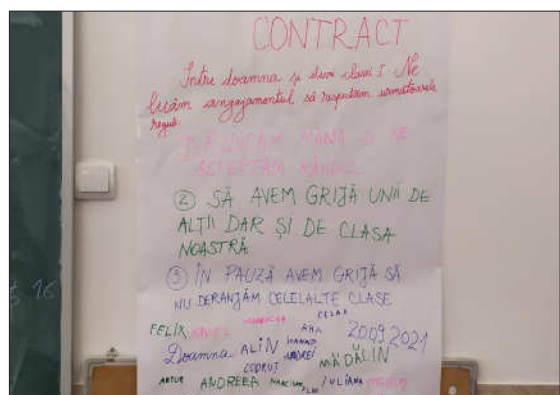 CONTRACT
Între doamna și elevii clasei I Ne
luăm angajamentul să respectăm următoarele
reguli:
RIDICĂM MÂNA ȘI NE
AȘTEPTĂM RÂNDUL
② SĂ AVEM GRIJĂ UNII DE
ALȚII DAR ȘI DE CLASA
NOASTRĂ
③ ÎN PAUZĂ AVEM GRIJĂ SĂ
NU DERANJĂM CELELALTE CLASE
FELIX ANA 2009.2021
Doamna ALIN ANDREI MĂDĂLIN
CODRUȚ
ARTUR ANDREEA IULIANA
16